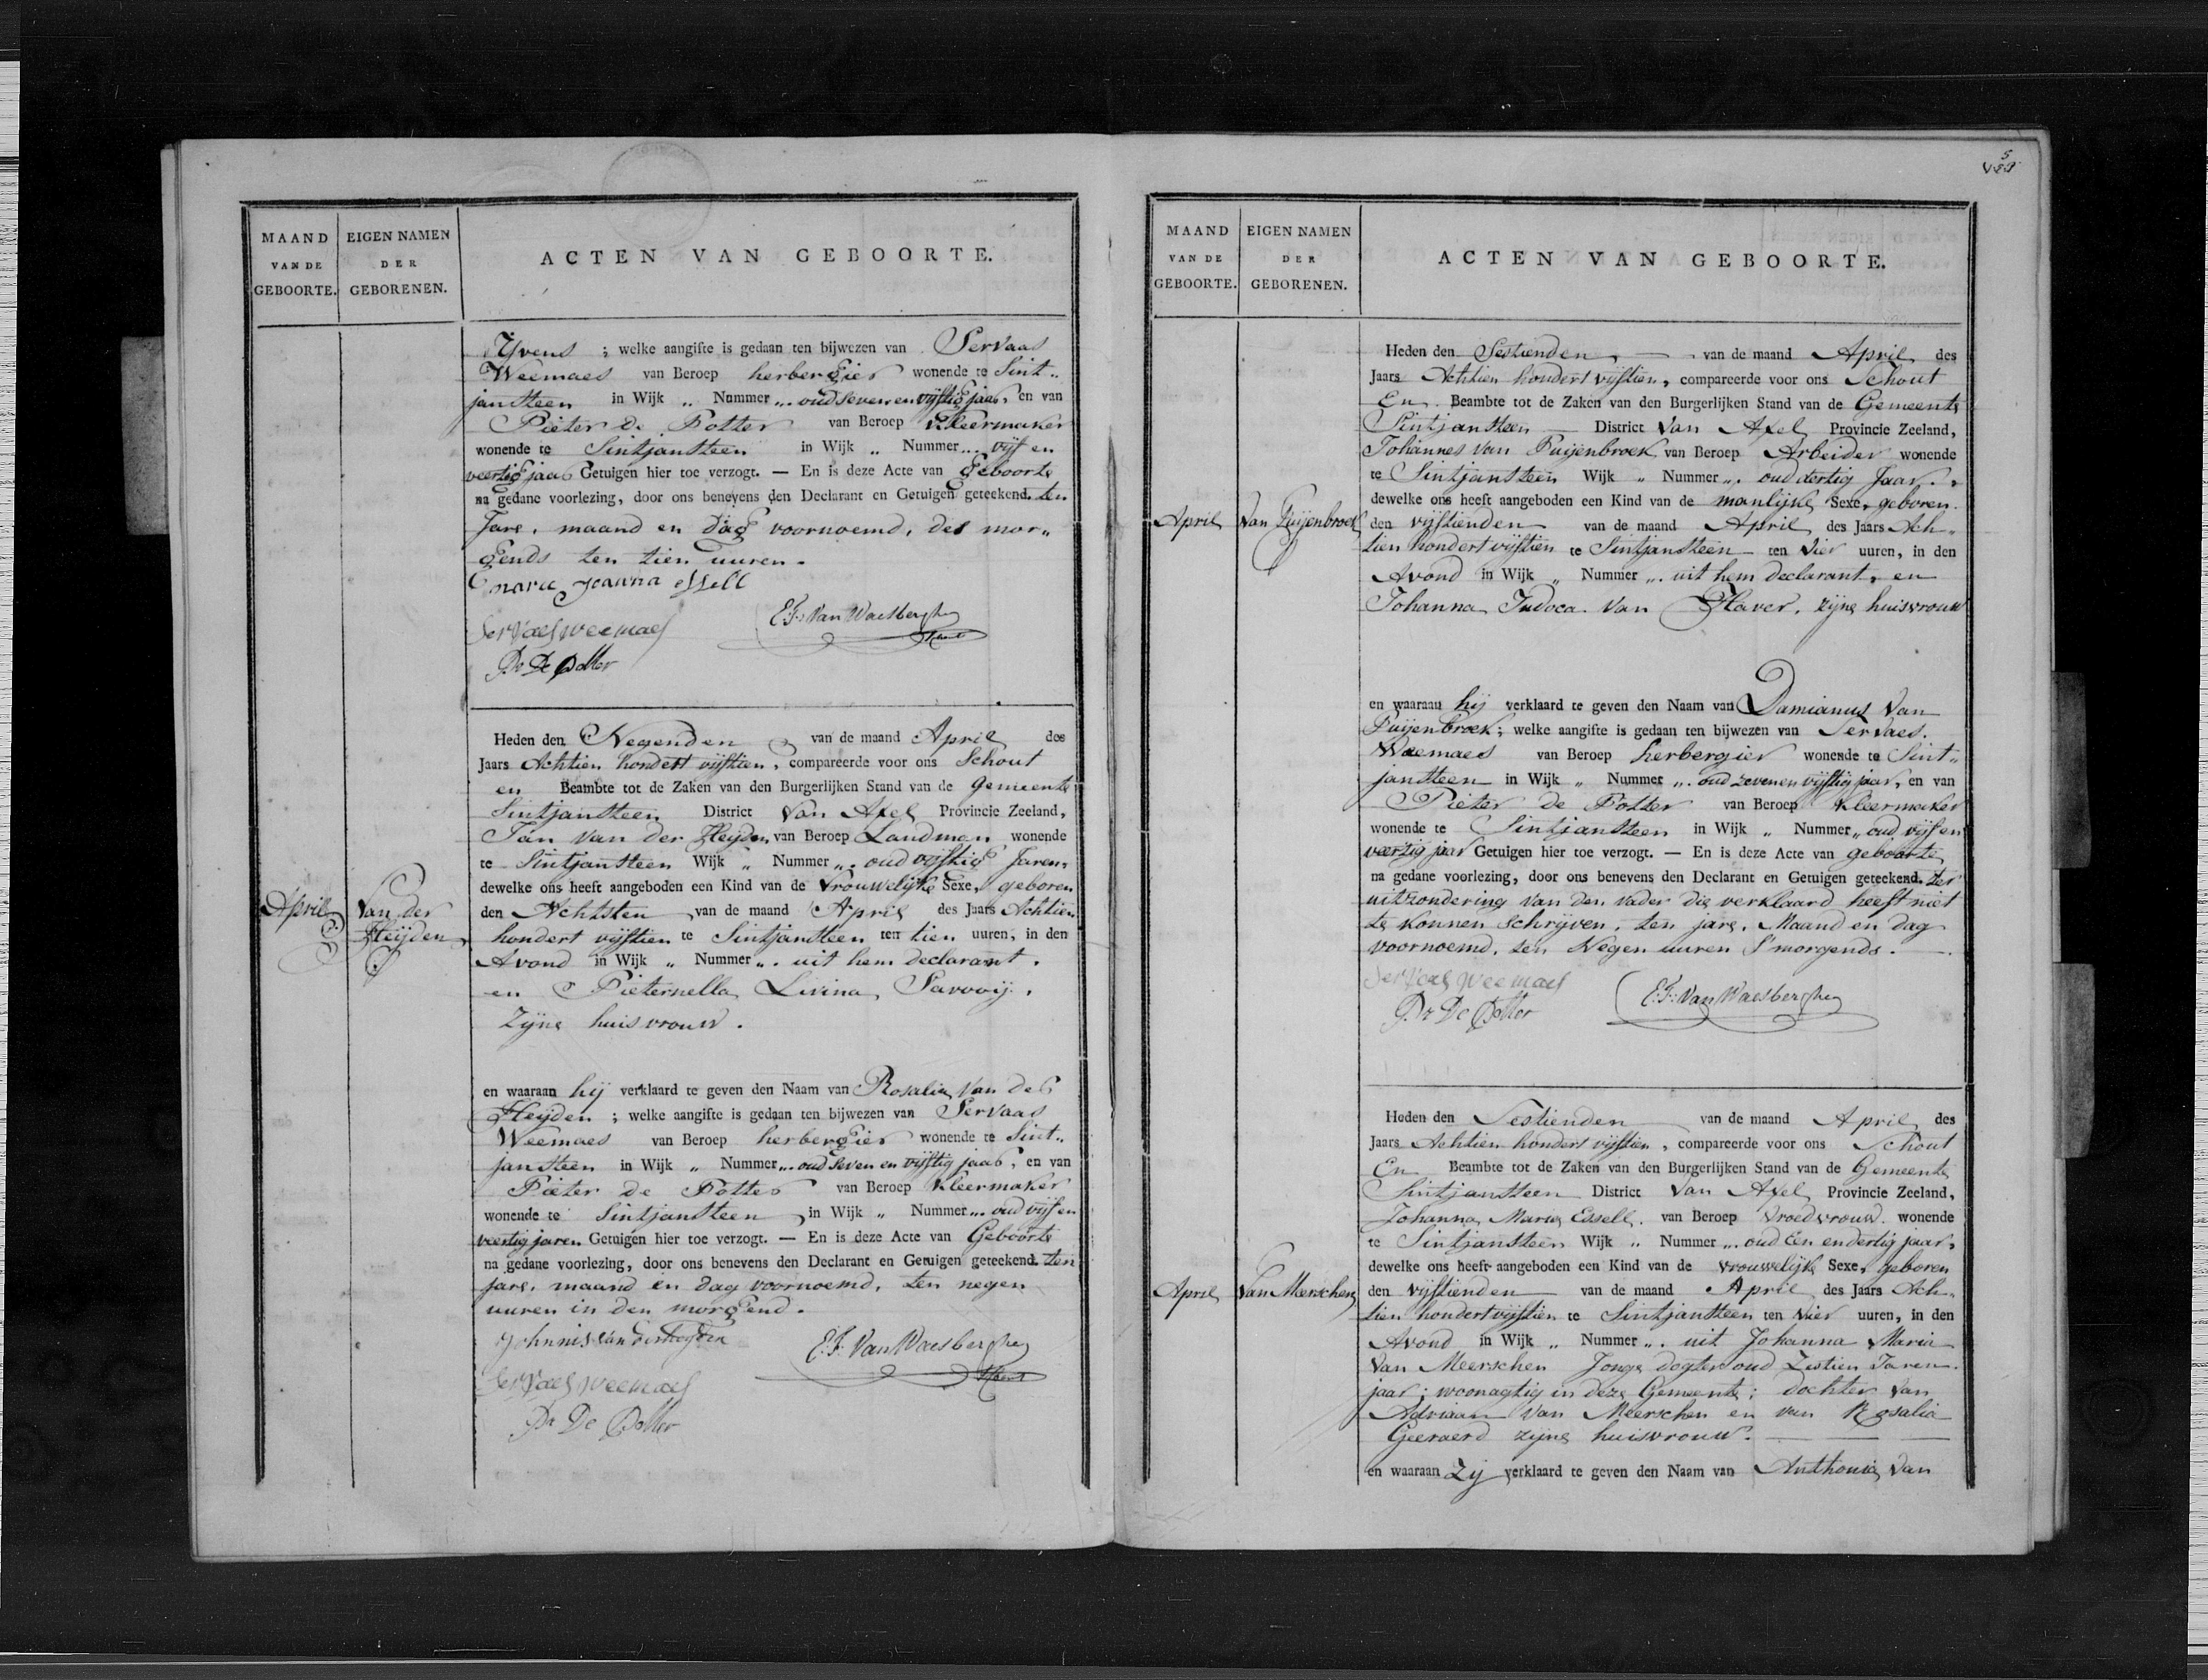 MAAND
VAN DE
GEBOORTE.
EIGEN NAMEN
DER
GEBORENEN.
ACTEN VAN GEBOORTE.
Yvens ; welke aangifte is gedaan ten bijwezen van Servaas
Weemaes van Beroep herbergier wonende te Sint„
jansteen in Wijk „ Nummer „. oud seven en vijftig jaar, en van
Pieter de Potter van Beroep Kleermaker
wonende te Sintjansteen in Wijk „ Nummer „. vijf en
veertig jaar Getuigen hier toe verzogt. — En is deze Acte van Geboorte
na gedane voorlezing, door ons benevens den Declarant en Getuigen geteekend. ten
Jare, maand en dag voornoemd, des mor„
gends ten tien uuren.
marie joanna essell
Servaes weemaes
E.F. Van Waesberghe
Schout
Pr De Potter
Heden den Negenden van de maand April des
Jaars Achtien hondert vijftien, compareerde voor ons Schout
en Beambte tot de Zaken van den Burgerlijken Stand van de Gemeente
Sintjansteen District Van Axel Provincie Zeeland,
Jan Van der Heyden van Beroep Landman wonende
te Sintjansteen Wijk „ Nummer „. oud vijftig Jaren,
dewelke ons heeft aangeboden een Kind van de Vrouwelijke Sexe, geboren
April
Van der
Heyden
den Achtsten van de maand April des Jaars Achtien
hondert vijftien te Sintjansteen ten tien uuren, in den
Avond in Wijk „ Nummer „. uit hem declarant.
en Pieternella Livina Savooij.
Zyne huisvrouw.
en waaraan hij verklaard te geven den Naam van Rosalia Van der
Heyden ; welke aangifte is gedaan ten bijwezen van Servaas
Weemaes van Beroep herbergier wonende te Sint„
jansteen in Wijk „ Nummer „. oud Seven en vijftig jaar, en van
Pieter de Potter van Beroep Kleermaker
wonende te Sintjansteen in Wijk „ Nummer „. oud vijf en
veertig jaren Getuigen hier toe verzogt. — En is deze Acte van Geboorte
na gedane voorlezing, door ons benevens den Declarant en Getuigen geteekend. ten
jare, maand en dag voornoemd, ten negen
uuren in den morgend.
Johnnis van der heyden
E.F. Van Waesberghe
Schout
Servaes weemaes
Pr De Potter
MAAND
VAN DE
GEBOORTE.
EIGEN NAMEN
DER
GEBORENEN.
ACTEN VAN GEBOORTE.
Heden den Sestienden van de maand April des
Jaars Achtien hondert vijftien, compareerde voor ons Schout
En Beambte tot de Zaken van den Burgerlijken Stand van de Gemeente
Sintjansteen District Van Axel Provincie Zeeland,
Johannes Van Puijenbroek van Beroep Arbeider wonende
te Sintjansteen Wijk „ Nummer „. oud dertig Jaar.
dewelke ons heeft aangeboden een Kind van de manlijke Sexe, geboren
April
Van Puijenbroek
den vijftienden van de maand April des Jaars Ach„
tien hondert vijftien te Sintjansteen ten vier uuren, in den
Avond in Wijk „ Nummer „. uit hem declarant, en
Johanna Judoca Van Haver, zijne huisvrouw
en waaraan hij verklaard te geven den Naam van Damianus Van
Puijenbroek; welke aangifte is gedaan ten bijwezen van Servaes.
Weemaes van Beroep herbergier wonende te Sint„
jansteen in Wijk „ Nummer „. oud zeven en vijftig jaar, en van
Pieter de Potter van Beroep Kleermaker
wonende te Sintjansteen in Wijk „ Nummer „ oud vijf en
veertig jaar Getuigen hier toe verzogt. — En is deze Acte van geboorte
na gedane voorlezing, door ons benevens den Declarant en Getuigen geteekend. ter
uitzondering van den vader die verklaard heeft niet
te konnen schryven, ten jare, Maand en dag
voornoemd, ten Negen uuren S'morgends.
Servaes weemaes
Pr De Potter
E.F. Van Waesberghe
Heden den Sestienden van de maand April des
Jaars Achtien hondert vijftien, compareerde voor ons Schout
En Beambte tot de Zaken van den Burgerlijken Stand van de Gemeente
Sintjansteen District Van Axel Provincie Zeeland,
Johanna Maria Essell. van Beroep Vroedvrouw. wonende
te Sintjansteen Wijk „ Nummer „. oud Een en dertig jaar,
dewelke ons heeft aangeboden een Kind van de vrouwelijke Sexe, geboren
April
Van Meerschen
den vijftienden van de maand April des Jaars Ach„
tien hondert vijftien te Sintjansteen ten Vier uuren, in den
Avond in Wijk „ Nummer „. uit Johanna Maria
Van Meerschen Jonge dogter oud Zestien Jaren
jaar; woonagtig in deze Gemeente; dochter van
Adriaan Van Meerschen en van Rosalia
Geeraerd zyne huisvrouw.
en waaraan Zy verklaard te geven den Naam van Anthonia Van